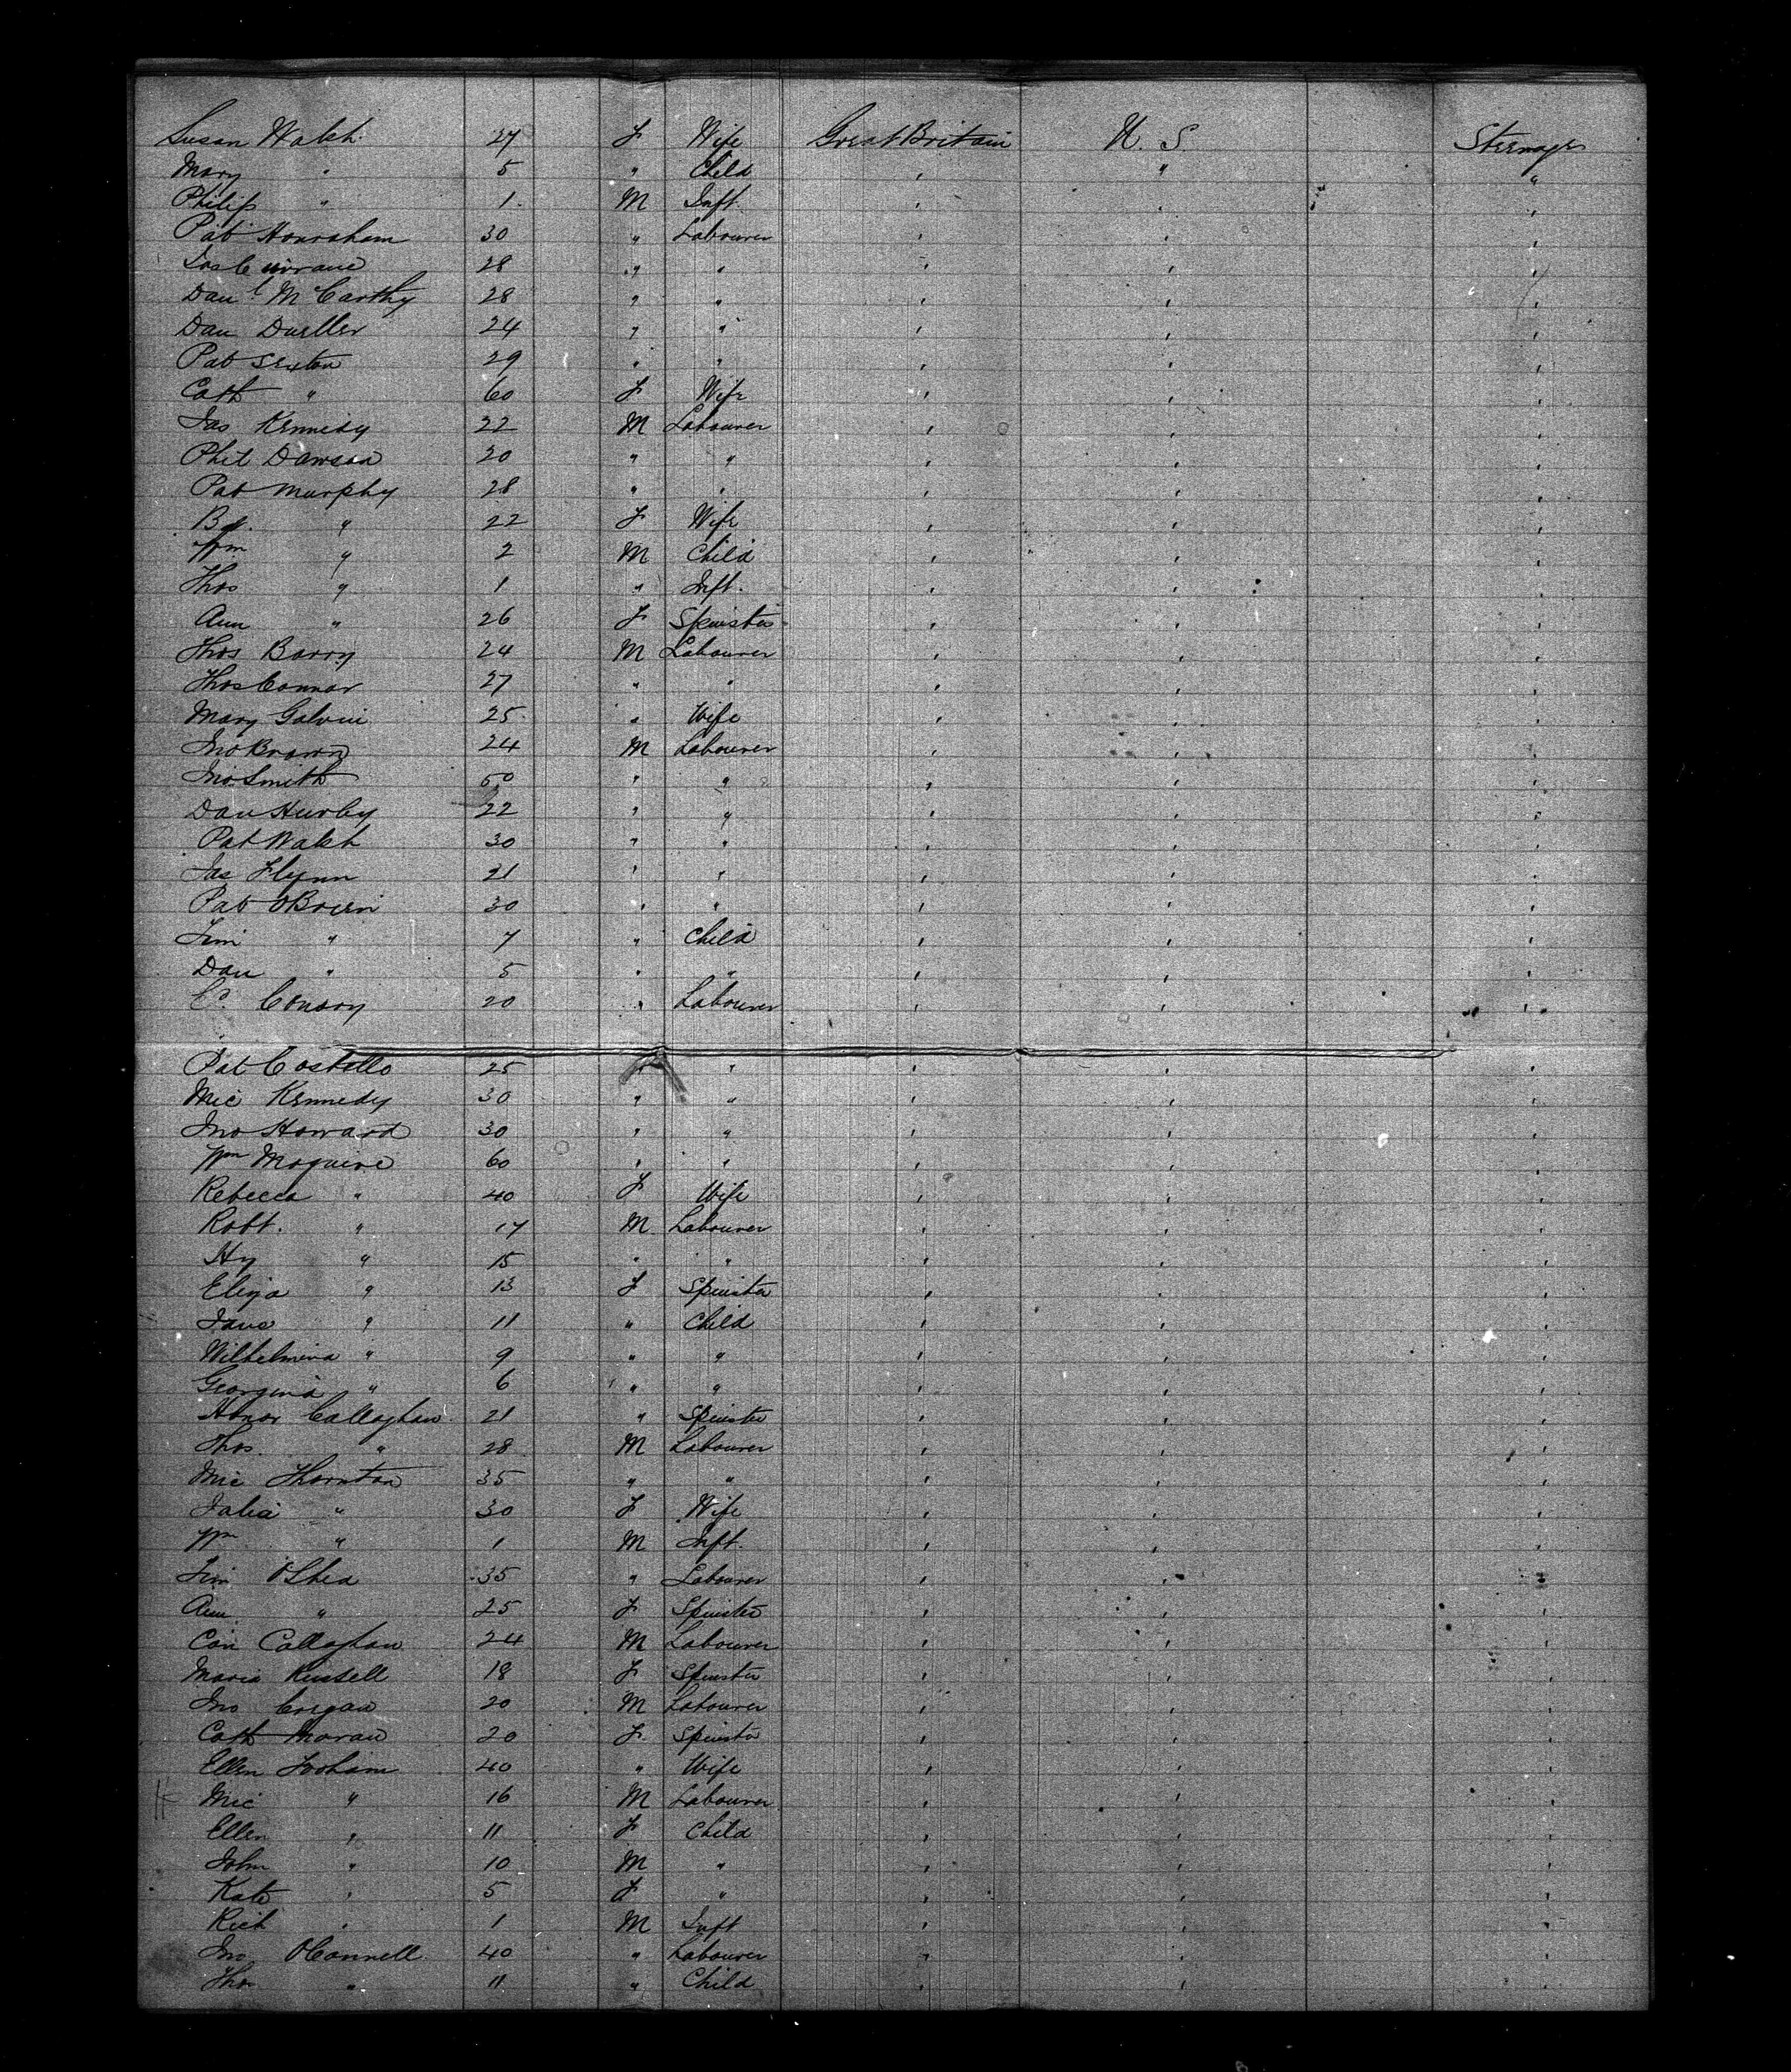 Susan Walsh 27 F Wife Great Britain U. S. Steerage
Mary " 5 " Child " " "
Philip " 1 M Inft. " " "
Pat Hanraham 30 " Labourer " " "
Jas Currane 28 " " " " "
Danl McCarthy 28 " " " " "
Dan Dueller 24 " " " " "
Pat Sexton 29 " " " " "
Cath " 60 F Wife " " "
Jas Kennedy 22 M Labourer " " "
Phil Dawson 20 " " " " "
Pat Murphy 28 " " " " "
" 22 F Wife " " "
Wm " 2 M Child " " "
Thos " 1 " Inft. " " "
Ann " 26 F Spinster " " "
Thos Barry 24 M Labourer " " "
Thos Connor 27 " " " " "
Mary Galvin 25 " Wife " " "
Jno Brown 24 M Labourer " " "
Jno Smith 50 " " " " "
Dan Hurley 22 " " " " "
Pat Walsh 30 " " " " "
Jas Flynn 21 " " " " "
Pat OBrien 30 " " " " "
Tim " 7 " Child " " "
Dan " 5 " " " " "
C. Conroy 20 " Labourer " " "
Pat Costello 25 " " " " "
Mic Kennedy 30 " " " " "
Jno Howard 30 " " " " "
Wm Maguire 60 " " " " "
Rebecca " 40 F Wife " " "
Robt. " 17 M Labourer " " "
Hy " 15 " " " " "
Eliza " 13 F Spinster " " "
Jane " 11 " Child " " "
Wilhelmina " 9 " " " " "
Georgina " 6 " " " " "
Honor Callaghan 21 " Spinster " " "
Thos. " 28 M Labourer " " "
Mic Thornton 35 " " " " "
Julia " 30 F Wife " " "
Wm " 1 M Inft. " " "
Tim OShea 35 " Labourer " " "
Ann " 25 F Spinster " " "
Con Callaghan 24 M Labourer " " "
Maria Russell 18 F Spinster " " "
Jno Corgan 20 M Labourer " " "
Cath Moran 20 F Spinster " " "
Ellen 40 " Wife " " "
Mic " 16 M Labourer " " "
Ellen " 11 F Child " " "
John " 10 M " " " "
Kate " 5 F " " " "
Rich " 1 M Inft " " "
Jno OConnell 40 " Labourer " " "
Thos " 11 " Child " " "